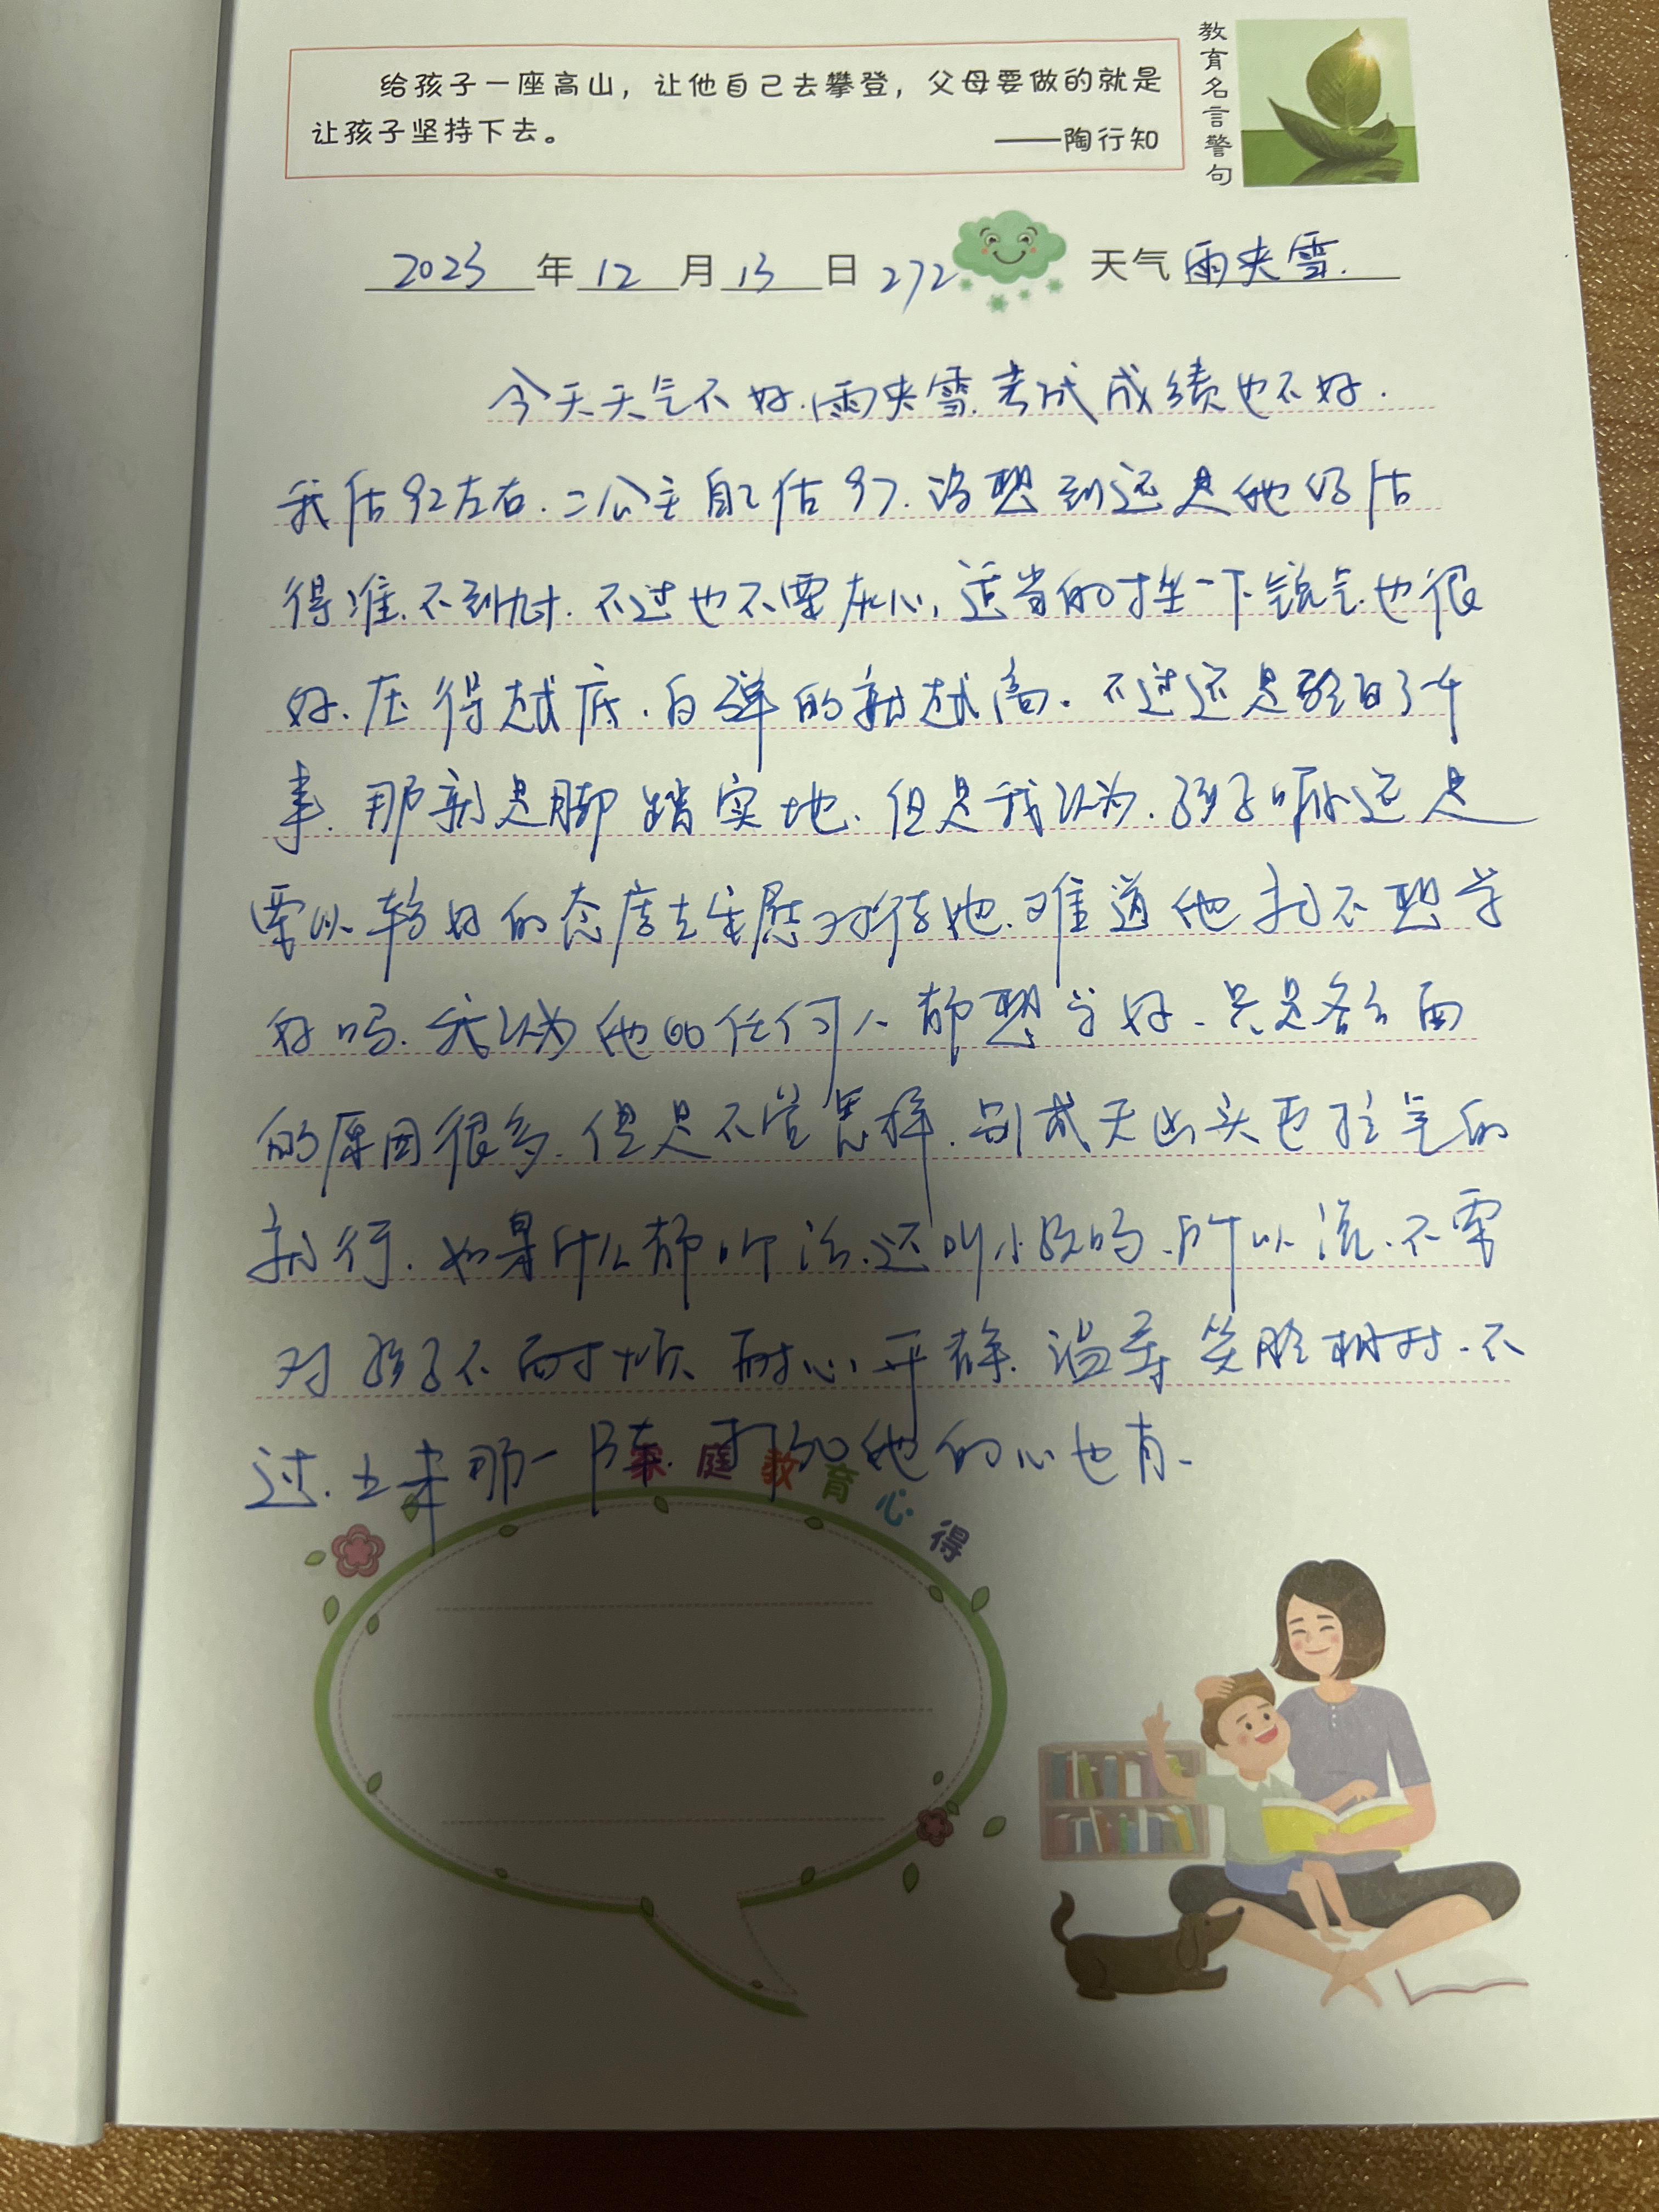 给孩子一座高山，让他自己去攀登，父母要做的就是
让孩子坚持下去。 ——陶行知
教育名言警句
2023年12月13日 272 天气 雨夹雪.
今天天气不好.雨夹雪.考试成绩也不好.
我估92左右.二公主自己估97.没想到还是她妈估
得准.不到九十.不过也不要灰心,适当的挫一下锐气也很
好.压得越底.自弹的就越高.不过还是要明白了一件
事.那就是脚踏实地.但是我认为.孩子嘛还是
要以较好的态度去安慰对待她.难道他们不想学
好吗.我认为他的任何人都想学好.只是各方面
的原因很多.但是不管怎样.别成天出头丧气的
就行.如果什么都听话.还叫小孩吗.所以说.不要
对孩子不耐烦.耐心平静.温柔笑脸相对.不
过.上来那一阵.打她的心也有.
家庭教育心得